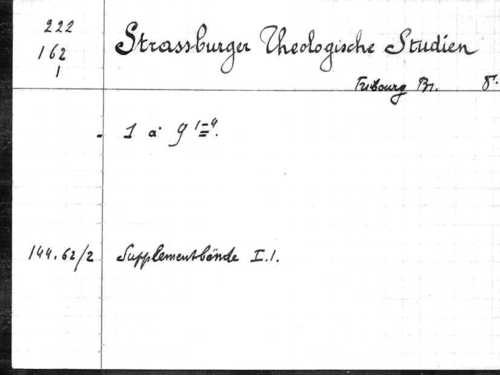 222
162
1
Strassburger Theologische Studien
Fribourg Br. 8°.
1 à 9 1-4.
144.62/2 Supplementbände I.1.